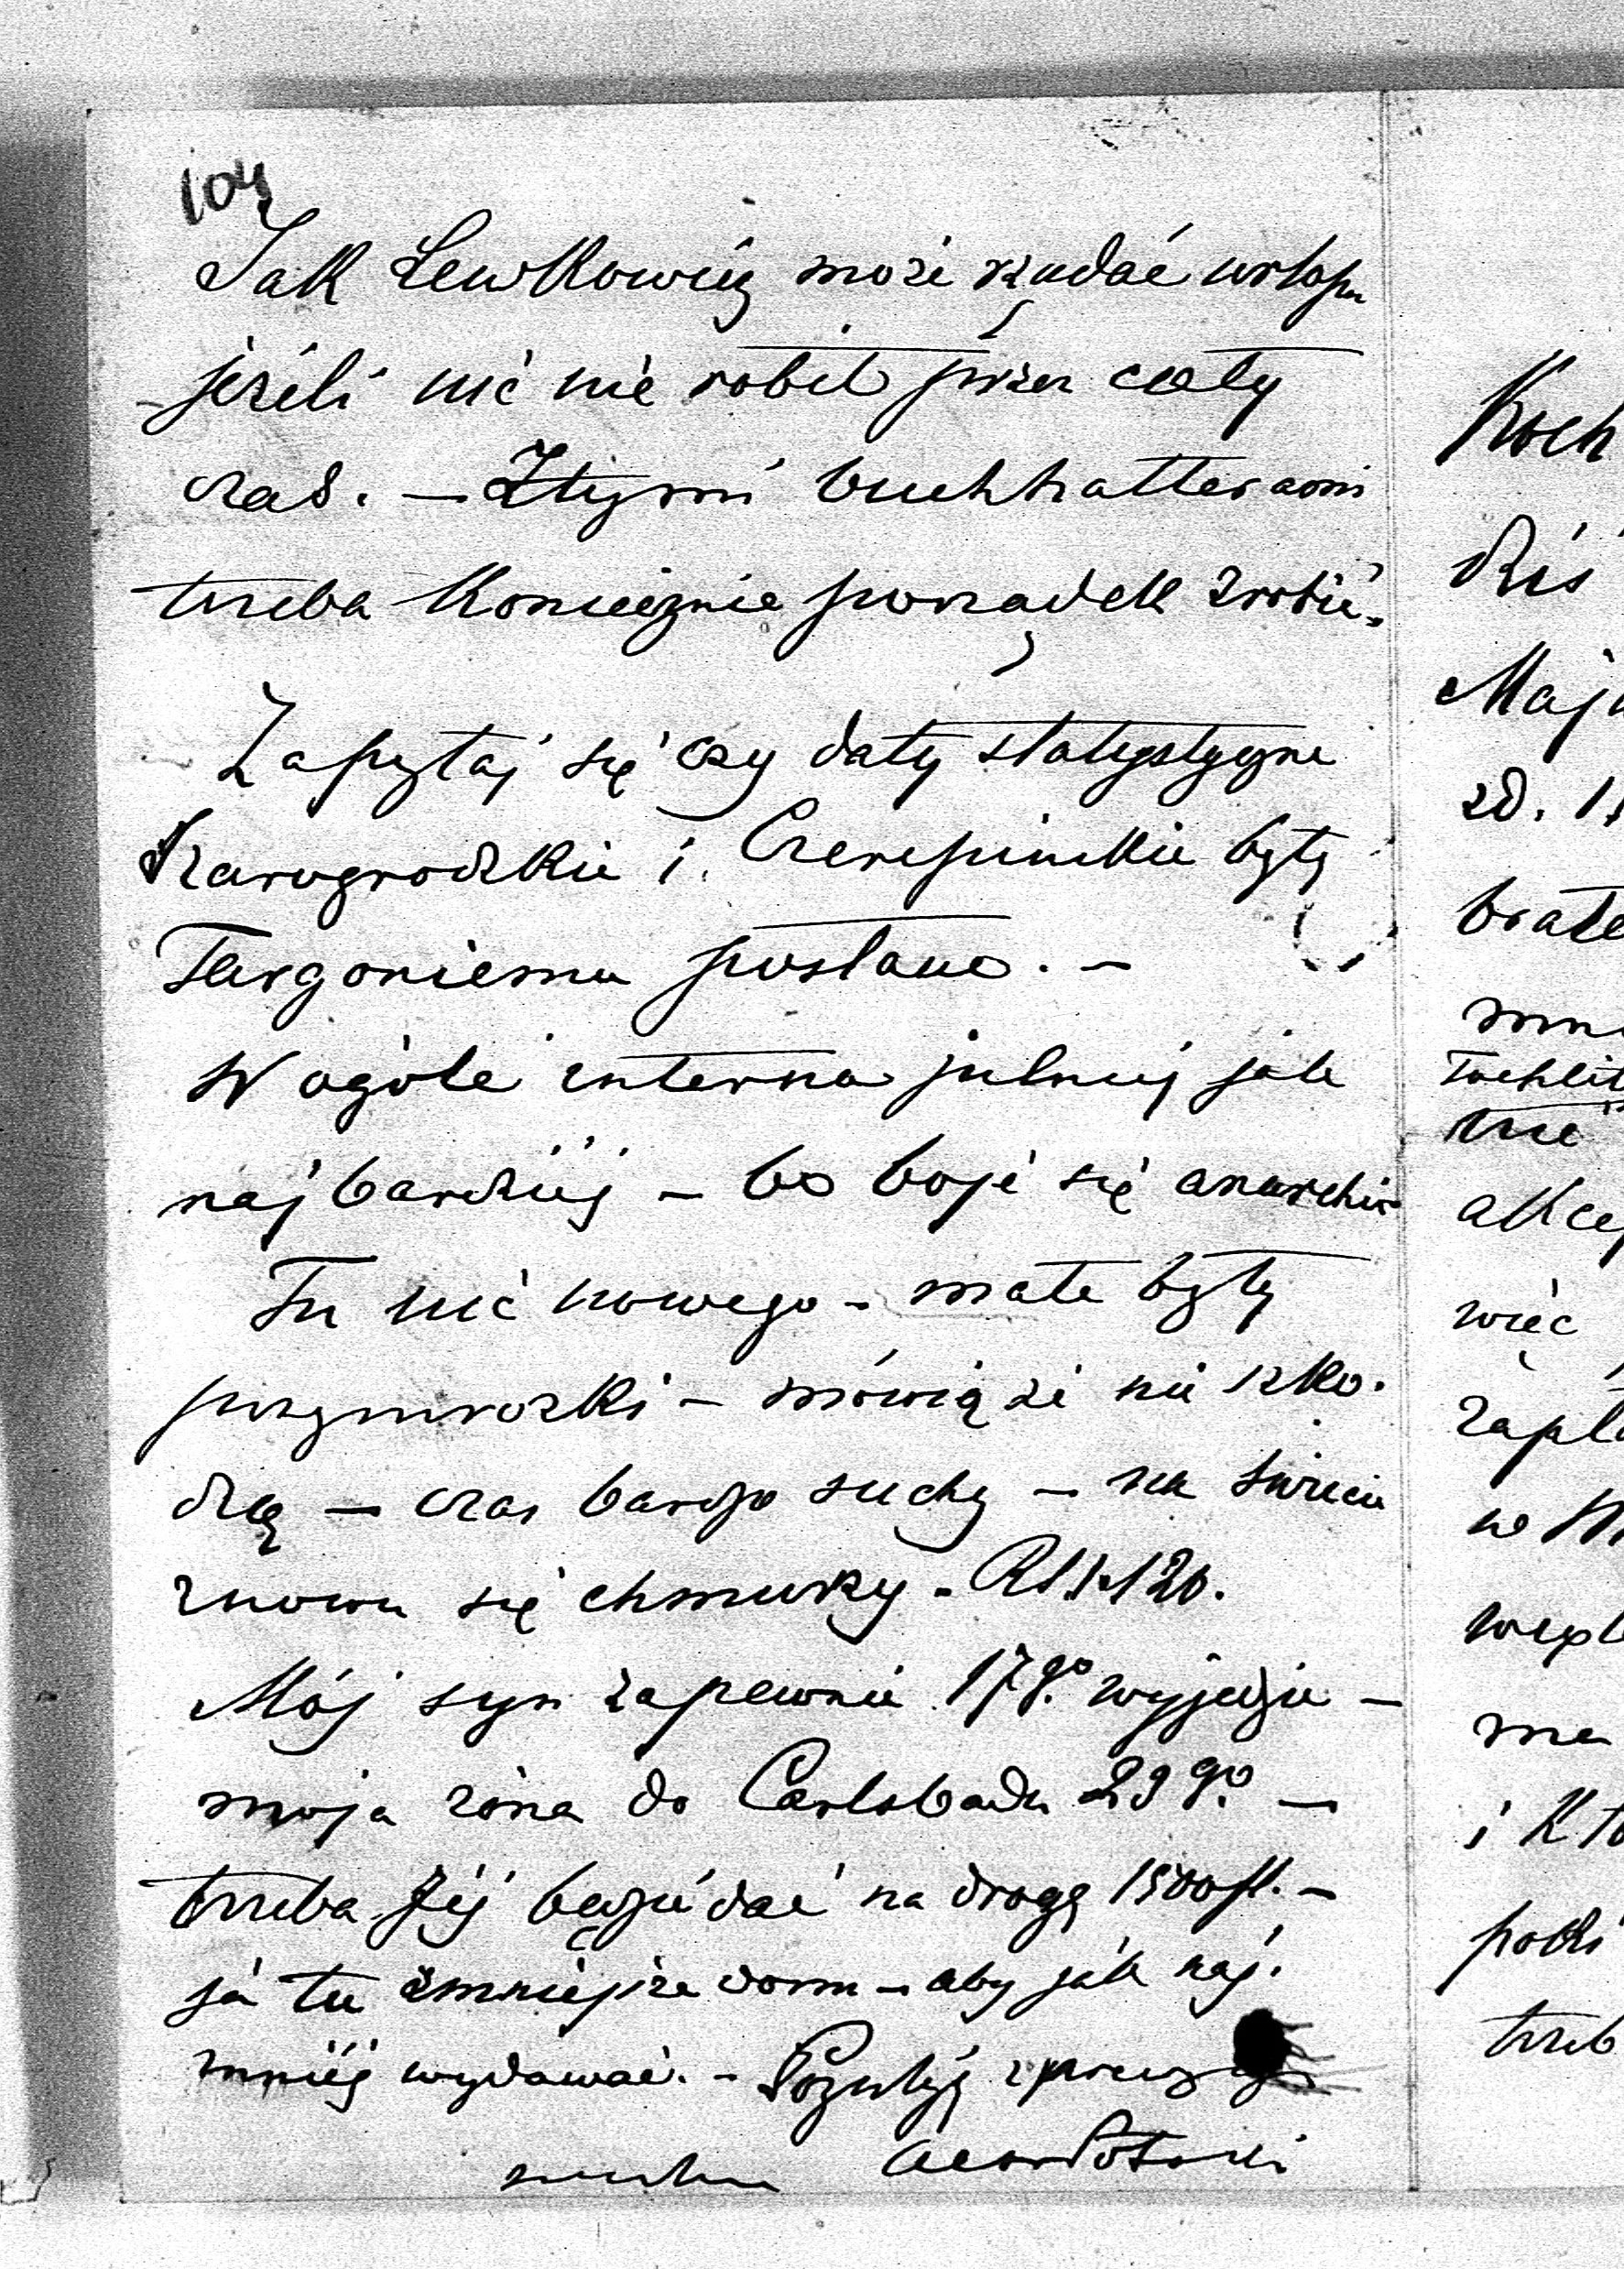 104
Jak Lewkowicz może rządać urlopu
jeżeli nic nie robił przez cały
czas. – Z tymi buchhalterami
trzeba koniecznie porządek zrobić.
Zapytaj się czy daty statystyczne
Szarogrodzkie i Czerepinskie były
Targoniemu posłane. –
W ogóle interna pilnuj jak
najbardziej – bo boję się anarchii
Tu nic nowego – małe były
przymrozki – mówią że nie szko-
dzą – czas bardzo suchy – na świecie
znowu się chmurzy – Rs 1.120.
Mój syn zapewnie 17go wyjedzie –
moja żona do Carlsbadu 29go –
trzeba jéj będzie dać na drogę 1500 fl. –
ja tu zmniejszę dom – aby jak naj-
mniéj wydawać. –
Koch
Dziś
Maj
zd. 1
brate
mn
Tochlit
nie
akcep
więc
zapła
w M
wypł
ma
i Kto
potki
trzeb